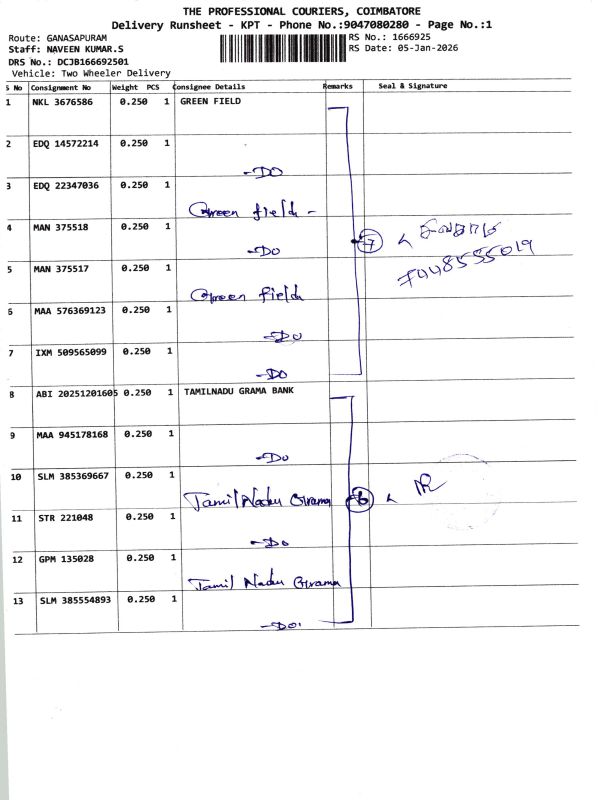 THE PROFESSIONAL COURIERS, COIMBATORE
Delivery Runsheet - KPT - Phone No.:9047080280 - Page No.:1
Route: GANASAPURAM
RS No.: 1666925
Staff: NAVEEN KUMAR.S
RS Date: 05-Jan-2026
DRS No.: DCJB166692501
Vehicle: Two Wheeler Delivery
S No Consignment No Weight PCS Consignee Details Remarks Seal & Signature
1 NKL 3676586 0.250 1 GREEN FIELD
2 EDQ 14572214 0.250 1
-DO
3 EDQ 22347036 0.250 1
Green field -
4 MAN 375518 0.250 1
-DO
7
7448555019
5 MAN 375517 0.250 1
Green field
6 MAA 576369123 0.250 1
-DO
7 IXM 509565099 0.250 1
-DO
8 ABI 20251201605 0.250 1 TAMILNADU GRAMA BANK
9 MAA 945178168 0.250 1
-DO
10 SLM 385369667 0.250 1
Tamil Nadu Grama
6
11 STR 221048 0.250 1
-DO
12 GPM 135028 0.250 1
Tamil Nadu Grama
13 SLM 385554893 0.250 1
-DO